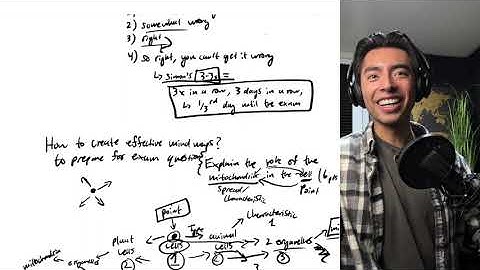 2) somewhat wrong
3) right
4) so right, you can't get it wrong
↳ Simon's 3-3s =
3x in a row, 3 days in a row,
↳ 1/3rd day until the exam
How to create effective mindmaps?
to prepare for exam questions
Explain the role of the
mitochondria in the cell (6 pts
spread/
characteristic
point
point
characteristic
1
plant
cells
2
Type
animal
cells
cells
1
2 organelles
3
organelle
mitochondria